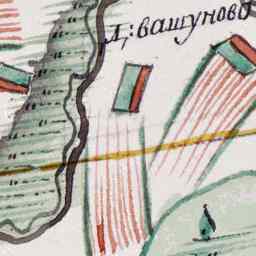 Д: вашуново